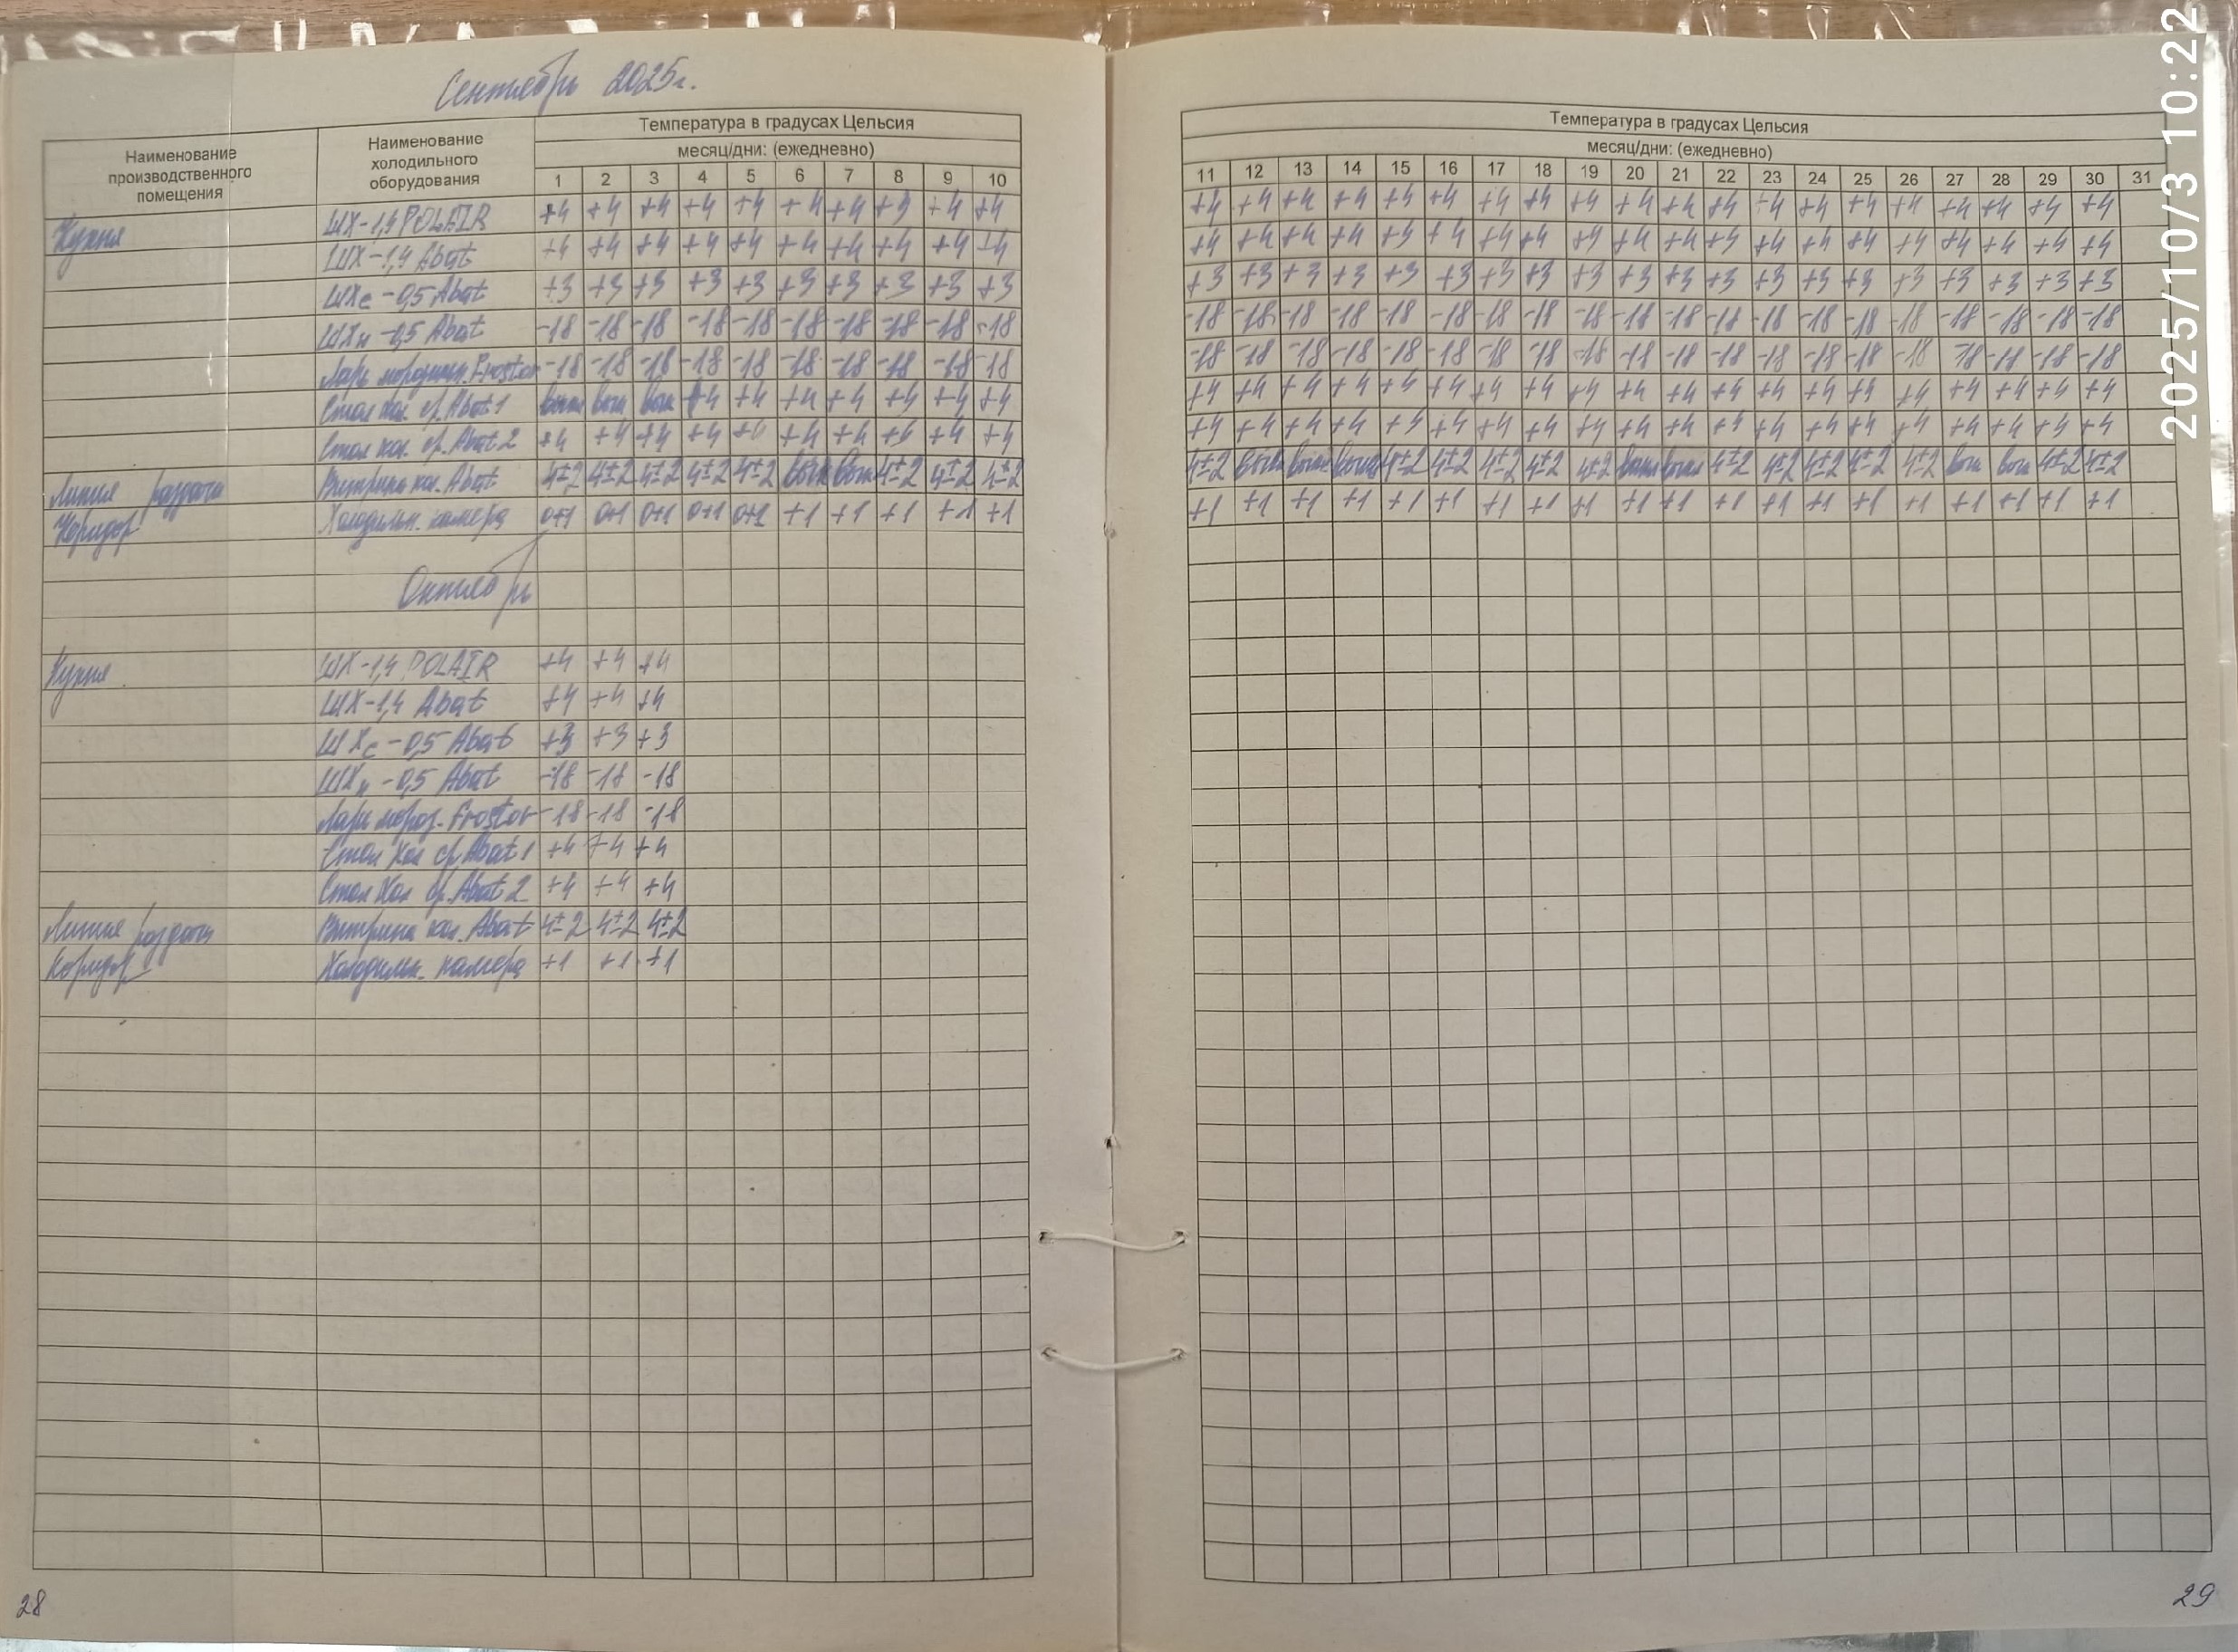 Сентябрь 2025г.
Наименование производственного помещения
Наименование холодильного оборудования
Температура в градусах Цельсия
месяц/дни: (ежедневно)
1 2 3 4 5 6 7 8 9 10
Кухня ШХ-1,4 POLAIR +4 +4 +4 +4 +4 +4 +4 +4 +4 +4
ШХ-1,4 Abat +4 +4 +4 +4 +4 +4 +4 +4 +4 +4
ШХс-0,5 Abat +3 +3 +3 +3 +3 +3 +3 +3 +3 +3
ШХн-0,5 Abat -18 -18 -18 -18 -18 -18 -18 -18 -18 -18
Ларь морозильн. Frostor -18 -18 -18 -18 -18 -18 -18 -18 -18 -18
Стол хол. ср. Abat 1 +4 +4 +4 +4 +4 +4 +4
Стол хол. ср. Abat 2 +4 +4 +4 +4 +4 +4 +4 +4 +4 +4
Линия раздачи Витрина хол. Abat 4±2 4±2 4±2 4±2 4±2 4±2 4±2 4±2
Коридор Холодильн. камера 0+1 0+1 0+1 0+1 0+1 +1 +1 +1 +1 +1
Октябрь
Кухня. ШХ-1,4 POLAIR +4 +4 +4
ШХ-1,4 Abat +4 +4 +4
ШХс-0,5 Abat +3 +3 +3
ШХн-0,5 Abat -18 -18 -18
Ларь мороз. Frostor -18 -18 -18
Стол Хол ср. Abat 1 +4 +4 +4
Стол Хол ср. Abat 2 +4 +4 +4
Линия раздачи Витрина хол. Abat 4±2 4±2 4±2
Коридор Холодильн. камера +1 +1 +1
28
Температура в градусах Цельсия
месяц/дни: (ежедневно)
11 12 13 14 15 16 17 18 19 20 21 22 23 24 25 26 27 28 29 30 31
+4 +4 +4 +4 +4 +4 +4 +4 +4 +4 +4 +4 +4 +4 +4 +4 +4 +4 +4 +4
+4 +4 +4 +4 +4 +4 +4 +4 +4 +4 +4 +4 +4 +4 +4 +4 +4 +4 +4 +4
+3 +3 +3 +3 +3 +3 +3 +3 +3 +3 +3 +3 +3 +3 +3 +3 +3 +3 +3 +3
-18 -18 -18 -18 -18 -18 -18 -18 -18 -18 -18 -18 -18 -18 -18 -18 -18 -18 -18 -18
-18 -18 -18 -18 -18 -18 -18 -18 -18 -18 -18 -18 -18 -18 -18 -18 -18 -18 -18 -18
+4 +4 +4 +4 +4 +4 +4 +4 +4 +4 +4 +4 +4 +4 +4 +4 +4 +4 +4 +4
+4 +4 +4 +4 +4 +4 +4 +4 +4 +4 +4 +4 +4 +4 +4 +4 +4 +4 +4 +4
4±2 4±2 4±2 4±2 4±2 4±2 4±2 4±2 4±2 4±2 4±2 4±2 4±2
+1 +1 +1 +1 +1 +1 +1 +1 +1 +1 +1 +1 +1 +1 +1 +1 +1 +1 +1 +1
29
2025/10/3 10:22